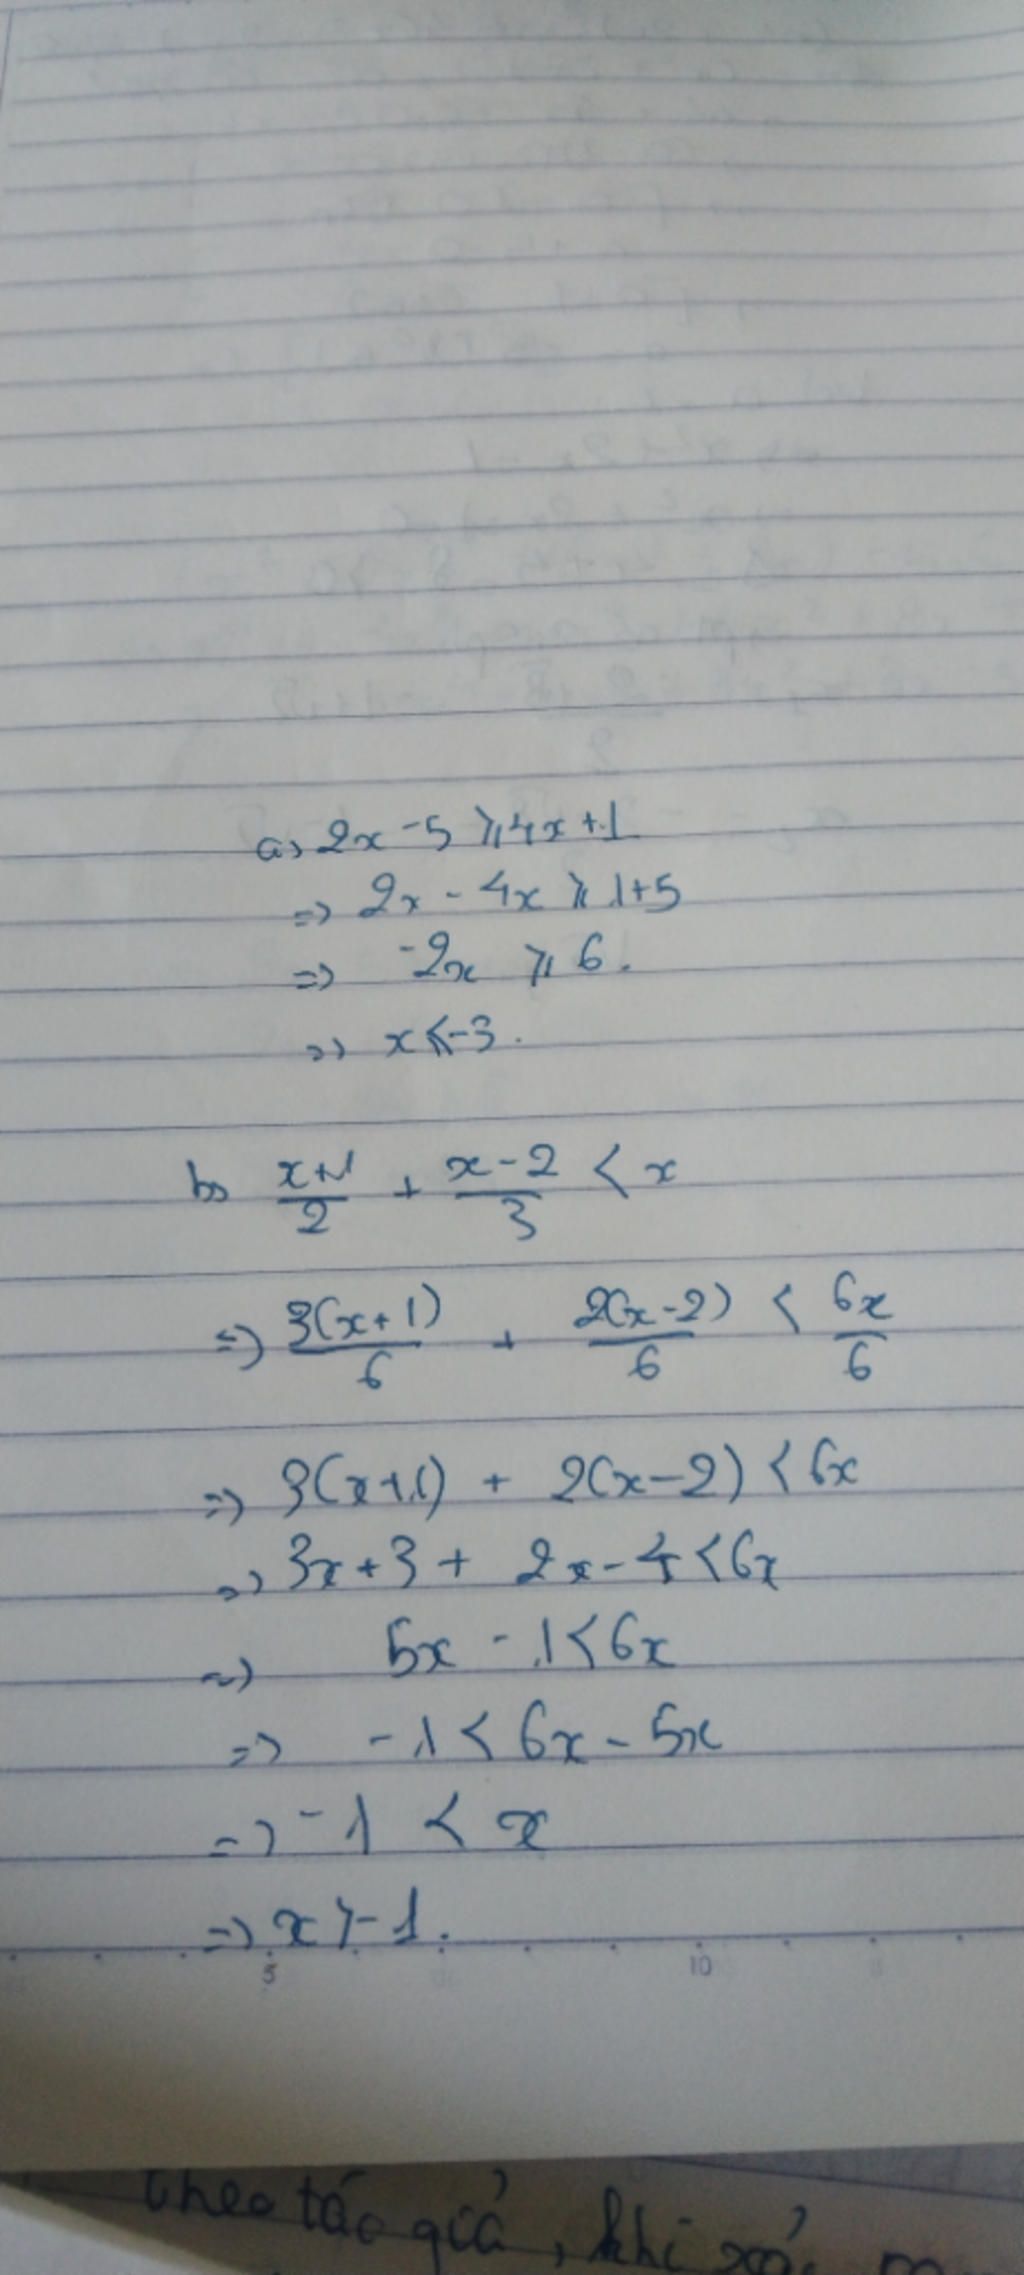 a, 2x - 5 ⩾ 4x + 1
=> 2x - 4x ⩾ 1 + 5
=> -2x ⩾ 6.
=> x ⩽ -3.
b, (x+1)/2 + (x-2)/3 < x
=> 3(x+1)/6 + 2(x-2)/6 < 6x/6
=> 3(x+1) + 2(x-2) < 6x
=> 3x + 3 + 2x - 4 < 6x
=> 5x - 1 < 6x
=> -1 < 6x - 5x
=> -1 < x
=> x > -1.
5 10
theo tác giả, khi